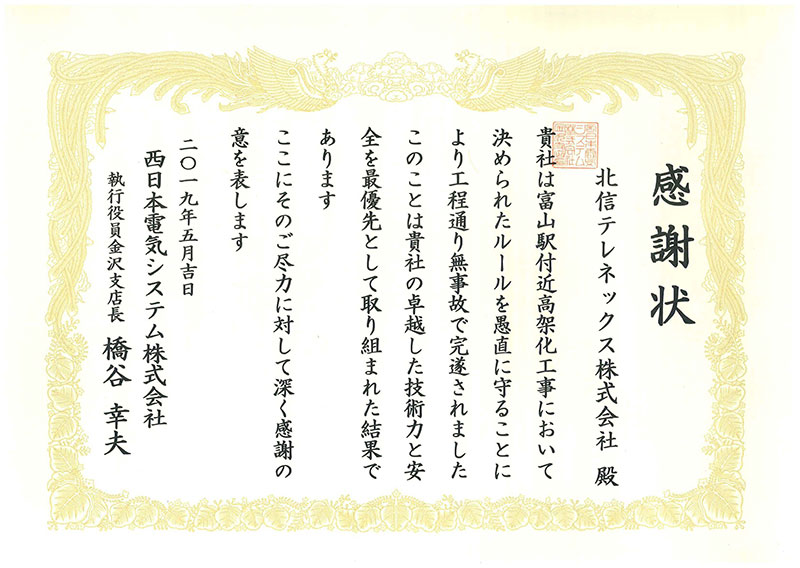 感謝状
北信テレネックス株式会社 殿
貴社は富山駅付近高架化工事において
決められたルールを愚直に守ることに
より工程通り無事故で完遂されました
このことは貴社の卓越した技術力と安
全を最優先として取り組まれた結果で
あります
ここにそのご尽力に対して深く感謝の
意を表します
二〇一九年五月吉日
西日本電気システム株式会社
執行役員金沢支店長 橋谷 幸夫